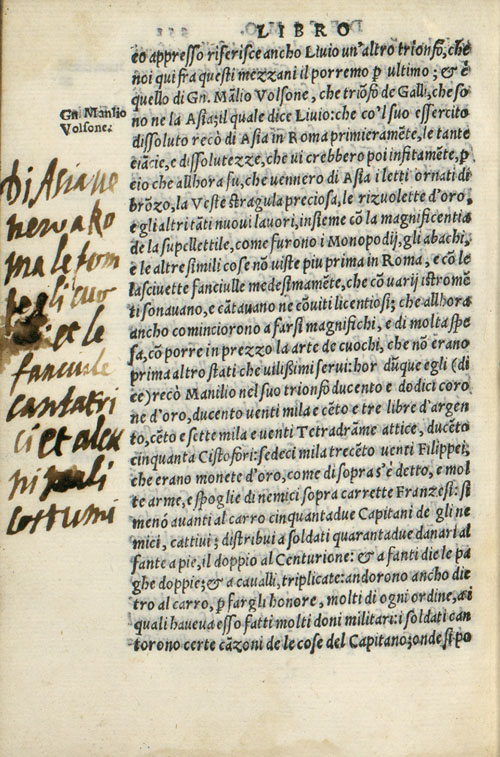 LIBRO
eo appresso riferisce ancho Liuio un'altro trionfo, che
noi qui fra questi mezzani il porremo p ultimo; & è
quello di Gn. Mãlio Volsone, che triõfò de Galli, che so
no ne la Asia; il quale dice Liuio: che co'l suo essercito
dissoluto recò di Asia in Roma primieramẽte, le tante
eiãcie, e dissolutezze, che ui crebbero poi infitamẽte, p
cio che all hora fu, che uennero di Asia i letti ornati di
brõzo, la Veste stragula preciosa, le rizuolette d'oro,
e gli altri tãti nuoui lauori, insieme cõ la magnificentia
de la supellettile, come furono i Monopodij, gli abachi,
e le altre simili cose nõ uiste piu prima in Roma, e cõ le
lasciuette fanciulle medesimamẽte, che cõ uarij istromẽ
ti sonauano, e cãtauano ne cõuiti licentiosi; che allhora
ancho cominciorono a farsi magnifichi, e di molta spe
sa, cõ porre in prezzo la arte de cuochi, che nõ erano
prima altro stati che uilissimi serui: hor dũque egli (di
ce) recò Manilio nel suo trionfo ducento e dodici coro
ne d'oro, ducento uenti mila e cẽto e tre libre d'argen
to, cẽto e sette mila e uenti Tetradrãme attice, ducẽto
cinquanta Cistofori: sedeci mila trecẽto uenti Filippei;
che erano monete d'oro, come di sopra s'è detto, e mol
te arme, e spoglie di nemici sopra carrette Franzesi: si
menò auanti al carro cinquantadue Capitani de gli ne
mici, cattiui; distribui a soldati quarantadue danari al
fante a pie, il doppio al Centurione: & a fanti die le pa
ghe doppie; & a caualli, triplicate: andorono ancho die
tro al carro, p fargli honore, molti di ogni ordine, a i
quali haueua esso fatti molti doni militari: i soldati can
torono certe cãzoni de le cose del Capitano; onde si po
Gn. Manlio
Volsone.
Di Asia ue
nero a Ro
ma le fem
gli cuo
et le
fanciule
cantatri
ci et alcu
ni
costumi